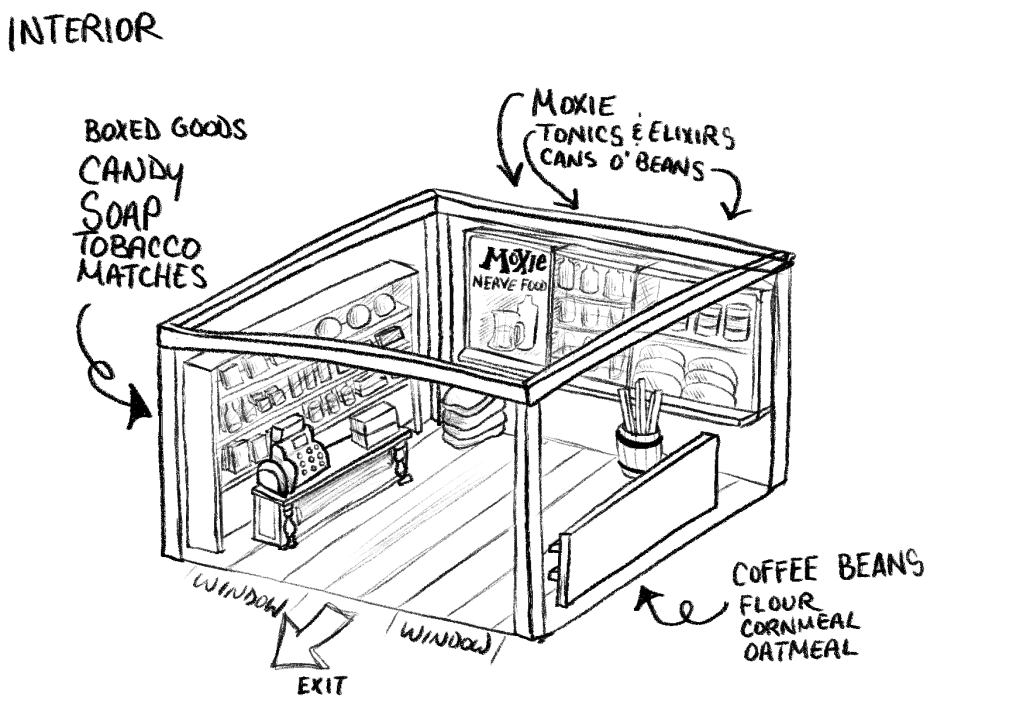 INTERIOR
BOXED GOODS
CANDY
SOAP
TOBACCO
MATCHES
MOXIE
TONICS & ELIXIRS
CANS O' BEANS
MOXIE
NERVE FOOD
COFFEE BEANS
FLOUR
CORNMEAL
OATMEAL
WINDOW
WINDOW
EXIT